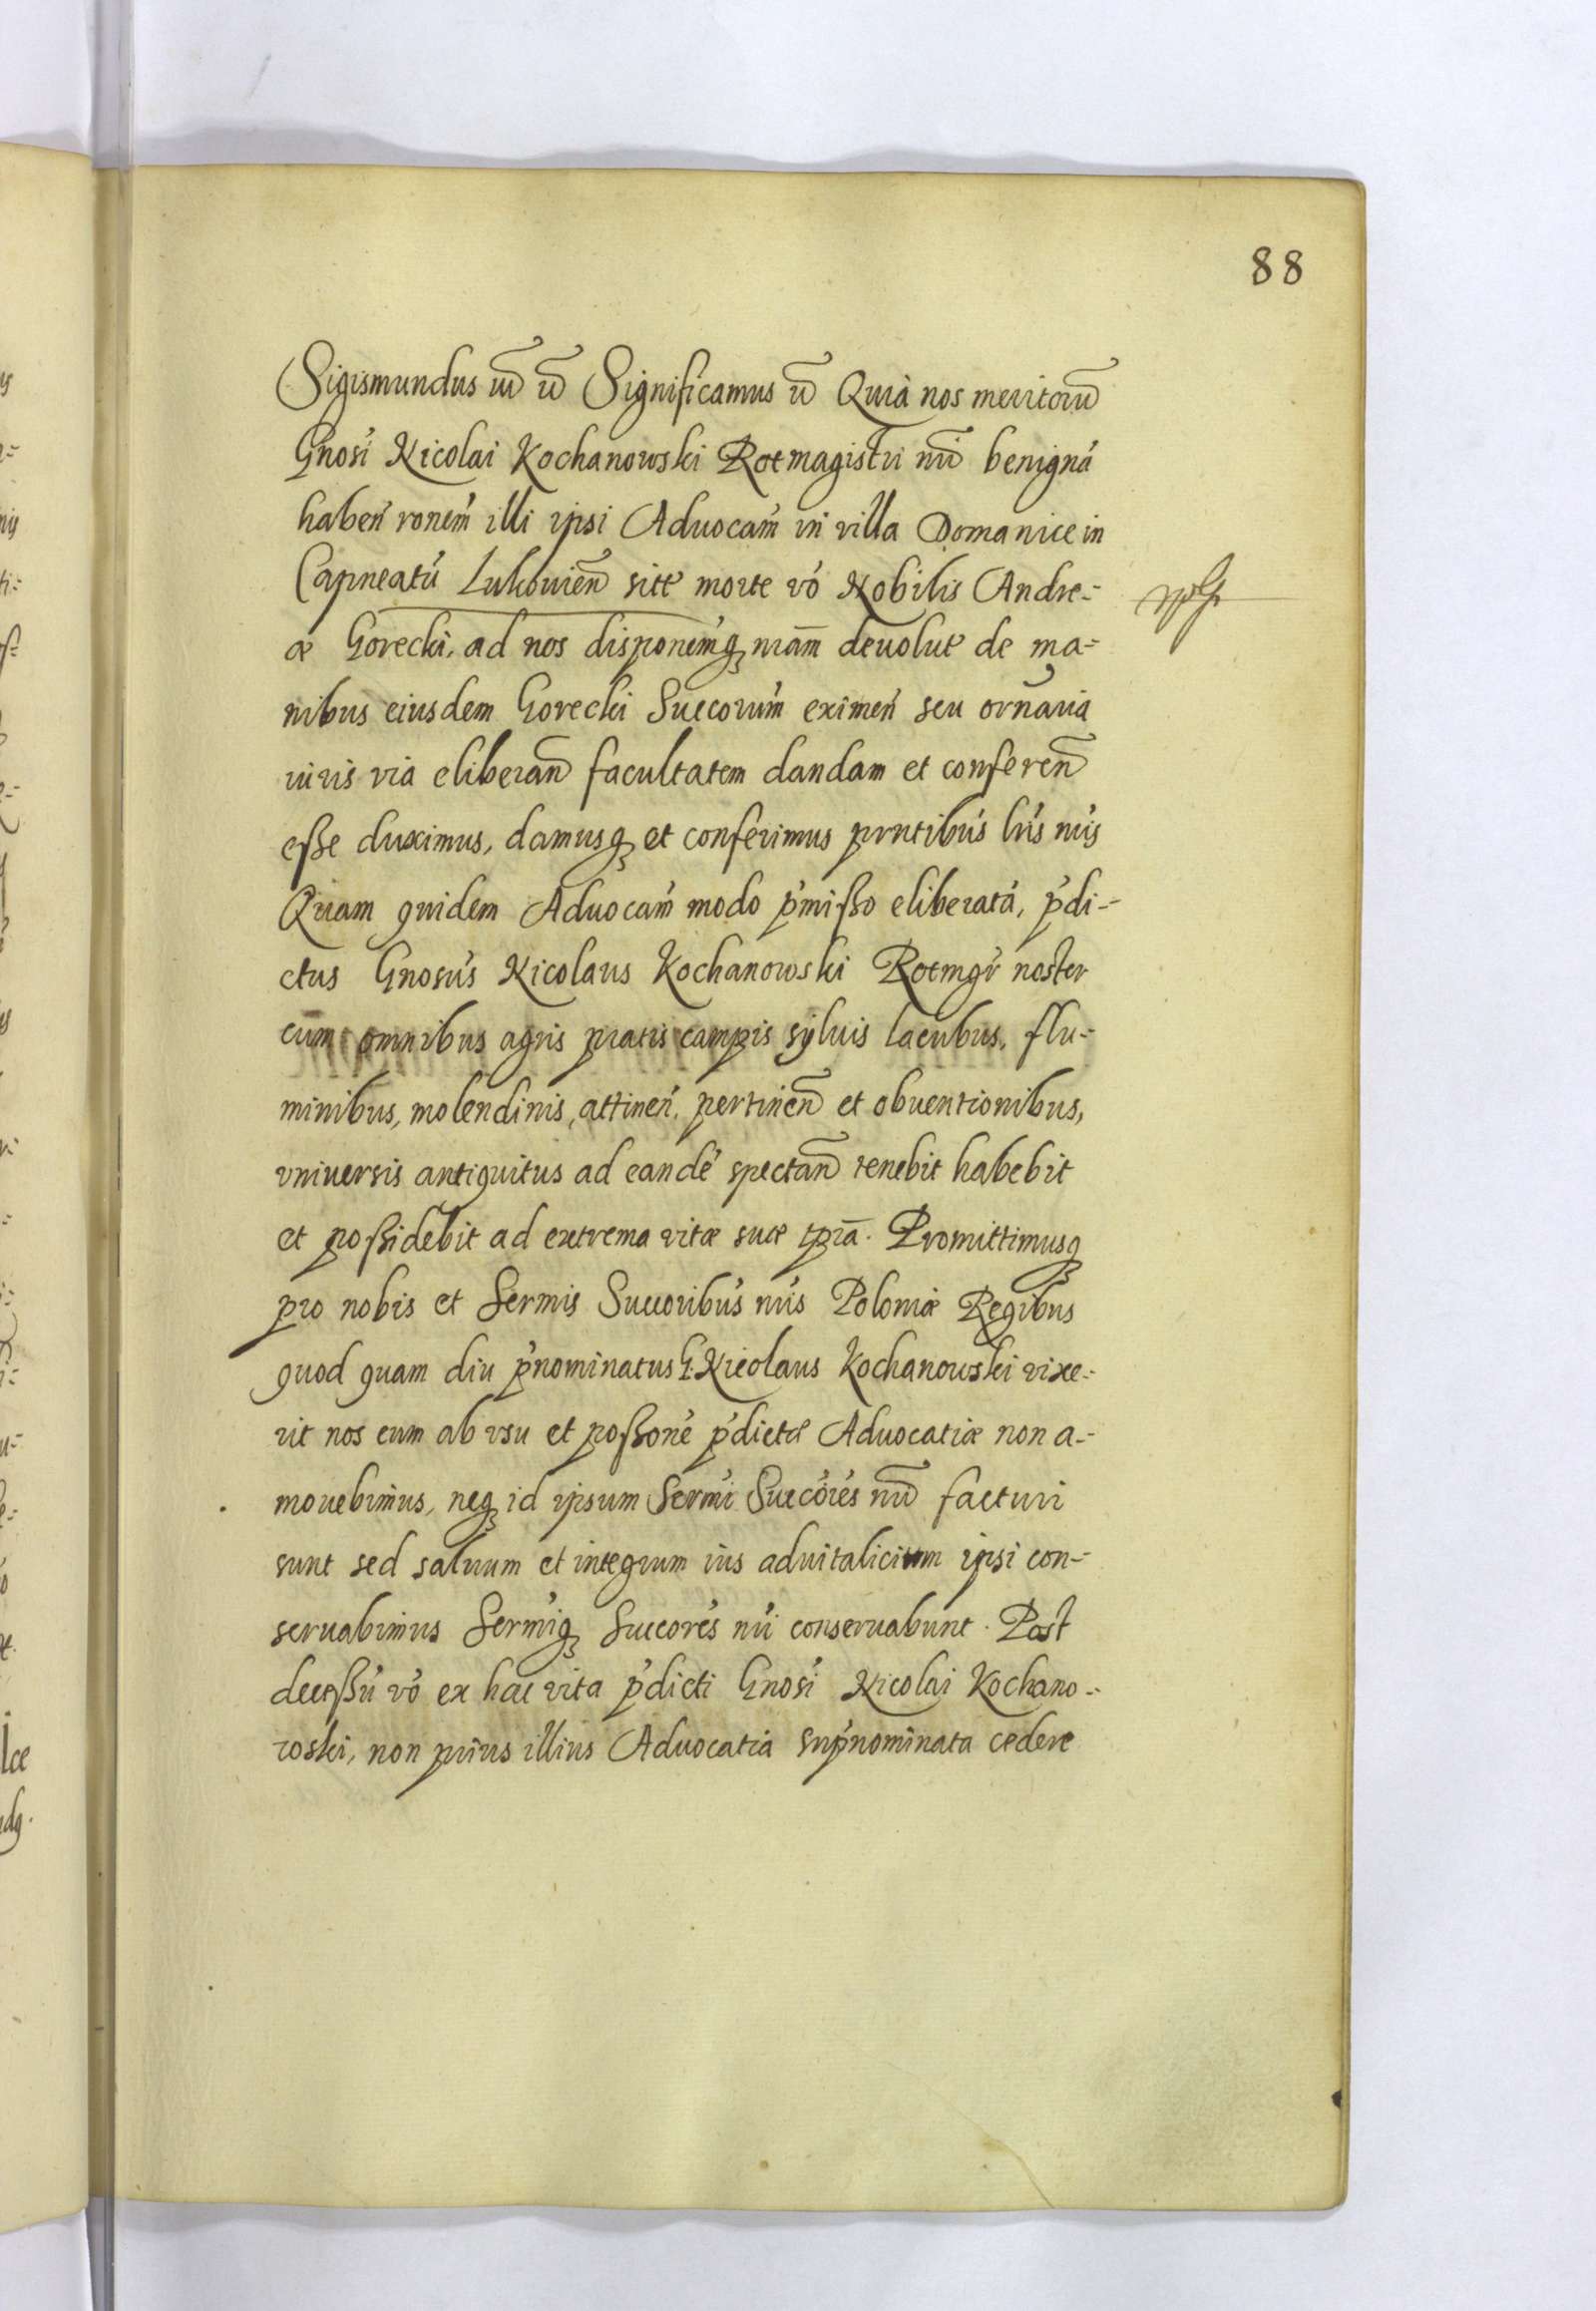 88
Sigismundus III͠ u͠ Significamus u͠ Quià nos meritoru͠
Gnosi Nicolai Kochanowski Rotmagistri nri benigná
haben ronem illi ipsi Aduocam in villa Domanice in
Capneatu Lukouien͠ sitt morte vó Nobilis Andre-
æ Gorecki, ad nos disponemq nram deuolut de ma-
nibus eiusdem Gorecki Succorum eximen seu ornaria
iuris via eliberan͠ facultatem dandam et conferen͠
eße duximus, damusq et conferimus prntibus lris nris
Quam quidem Aduocam modo ṕmißo eliberatá, ṕdi-
ctus Gnosus Nicolaus Kochanowski Rotmgr noster
cum omnibus agris pratis campis syluis lacubus, flu-
minibus, molendinis, attinen, pertinen͠ et obuentionibus,
vniuersis antiquitus ad eande spectan͠ tenebit habebit
et poßidebit ad extrema vitæ suæ tpra. Promittimusq
pro nobis et Sermis Succoribus nris Poloniæ Regibus
quod quam diu ṕnominatus G. Nicolaus Kochanowski vixe-
rit nos eum ab vsu et poßone ṕdictæ Aduocatiæ non a-
mouebimus, neq id ipsum Sermi Succores nri facturi
sunt sed saluum et integrum ius aduitalicium ipsi con-
seruabimus Sermiq Succores nri conseruabunt. Post
deceßu vó ex hac vita ṕdicti Gnosi Nicolai Kochano-
wski, non prius illius Aduocatia suṕnominata cedere